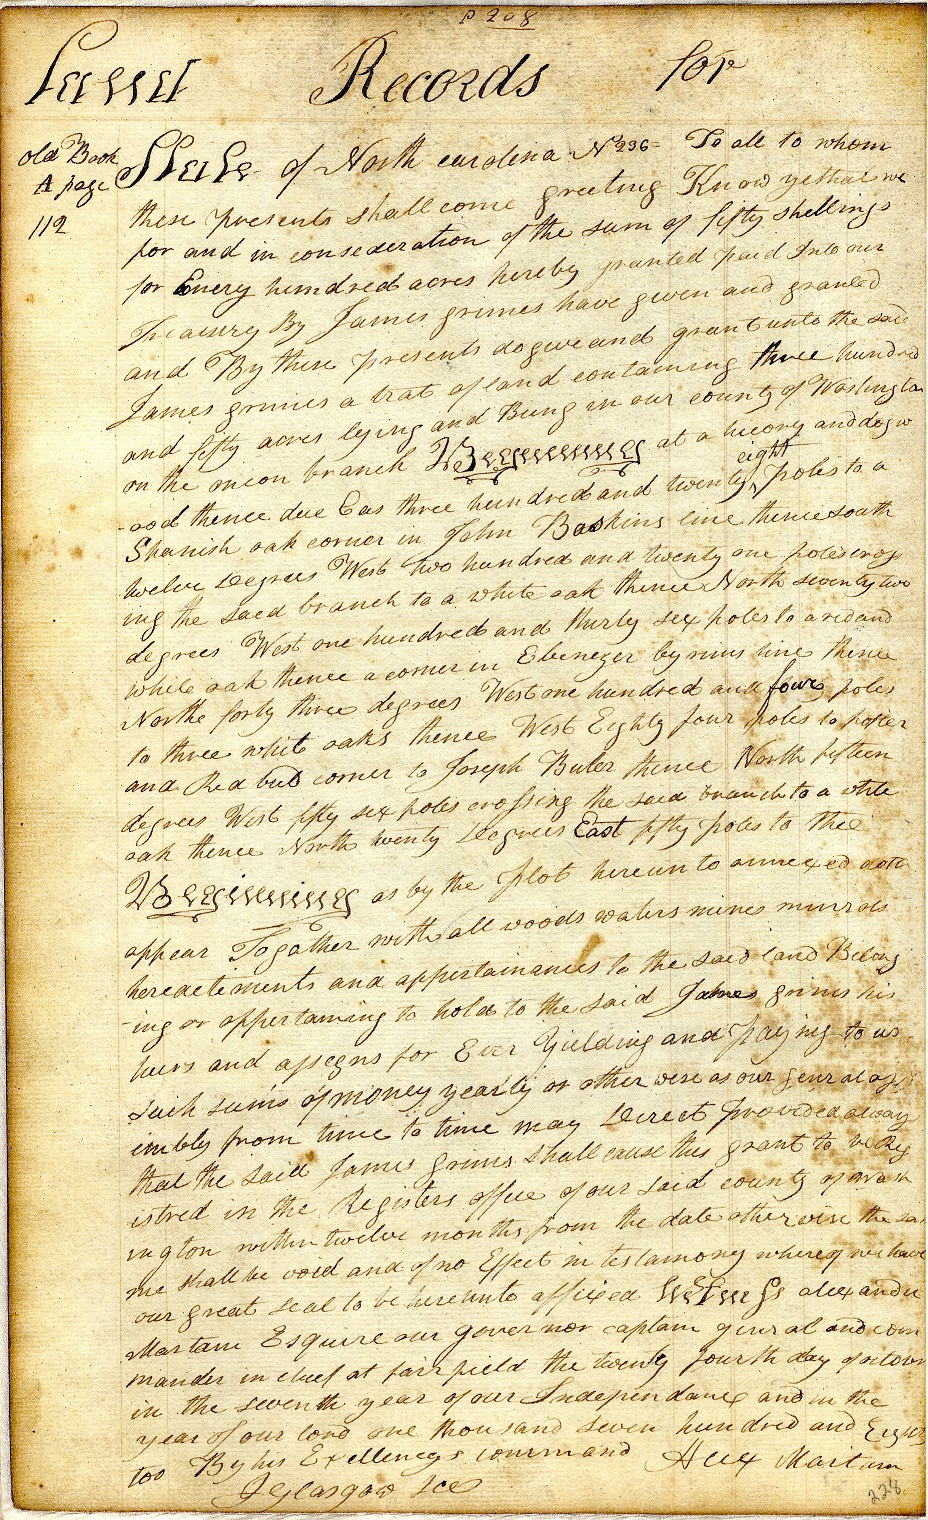 P 208
Land Records for
old Book
A page
112
State of North carolina No 236= To all to whom
these presents shall come greeting Know ye that we
for and in consederation of the sum of fifty shellings
for Every hundred acres hereby granted paid Into our
Treasury By James grimes have given and granted
and By these presents do give and grant unto the said
James grimes a trat of land containing three hundred
and fifty acres lying and Being in our county of Washington
on the onion branch Beginning at a hicory and dogw
-ood thence due Eas three hundred and twenty eight poles to a
Spanish oak corner in John Baskins line thence south
twelve Degrees West Two hundred and twenty one poles cross
ing the said branch to a white oak thence North seventy two
degrees West one hundred and thirty six poles to a red and
white oak thence a corner in Ebenezer byrums line thence
Northe forty three degrees West one hundred and four poles
to three whit oaks thence West Eighty four poles to popler
and Red bud corner to Joseph Buler thence North fifteen
degrees West fifty six poles crossing the said branch to a white
oak thence North twenty Degrees East fifty poles to the
Beginning as by the plot hereunto annexed doth
appear Together with all woods waters mines minrals
heredetiments and appertainances to the said land Belong
-ing or appertaining to hold to the said James grims his
heirs and assegns for Ever Yielding and paying to us
such sums of money yearly or other wise as our genral ass
embly from time to time may Derect provided always
that the said James grims shall cause this grant to be Reg
istred in the Registers office of our said county of wash
ington within twelve months from the date other wise the sa
me shall be void and of no Effect in testamony whereof we have
our great seal to be hereunto affixed Witness alexander
Martain Esquire our governor captain genral and com
mander in chief at fairfield the twenty fourth day of octover
in the seventh year of our Independance and in the
year of our lord one thousand seven hundred and Eighty
too By his Excellencys command Alex Martain
J Glasgow Sce
228